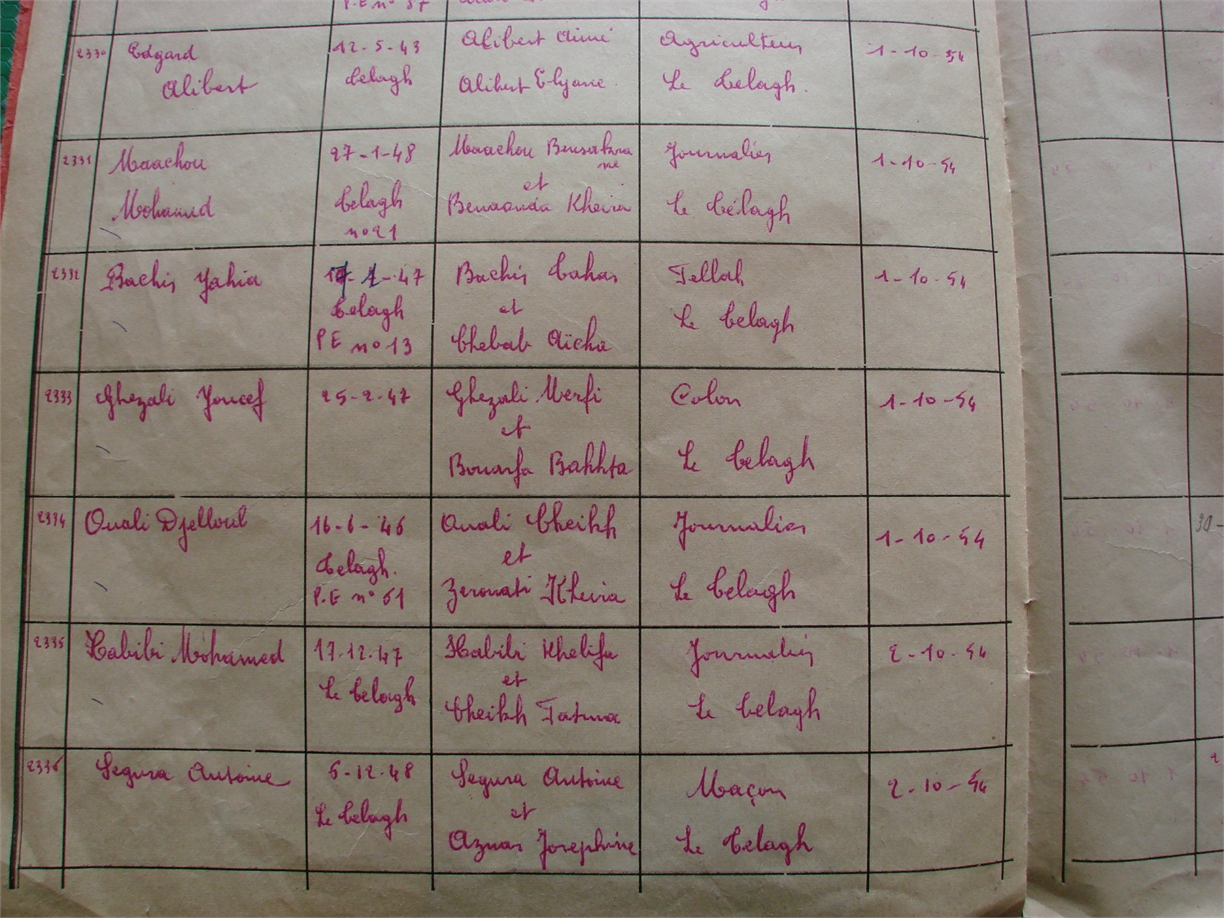 P.E nº 87
2330 Edgard Alibert
12-5-43
Telagh
Alibert Aimé
Alibert Elyane
Agriculteur
Le Telagh.
1-10-54
2331 Maachou
Mohamed
27-1-48
Telagh
nº 21
Maachou
et
Benaouda Kheira
Journalier
Le Télagh
1-10-54
2332 Bachir Yahia
-47
Telagh
PE nº 13
Bachir Tahar
et
Chebab Aïcha
Fellah
Le Telagh
1-10-54
2333 Ghezali Youcef
25-2-47
Ghezali
et
Bouarfa Bakhta
Colon
Le Telagh
1-10-54
2334 Ouali Djelloul
16-6-46
Telagh.
P.E nº 61
Ouali Cheikh
et
Zerouati Kheira
Journalier
Le Telagh
1-10-54
30-
2335 Habibi Mohamed
17.12.47
Le Telagh
Habibi Khelifa
et
Cheikh Fatma
Journalier
Le Telagh
2-10-54
2336 Segura Antoine
6-12-48
Le Telagh
Segura Antoine
et
Aznar Josephine
Maçon
Le Telagh
2-10-54